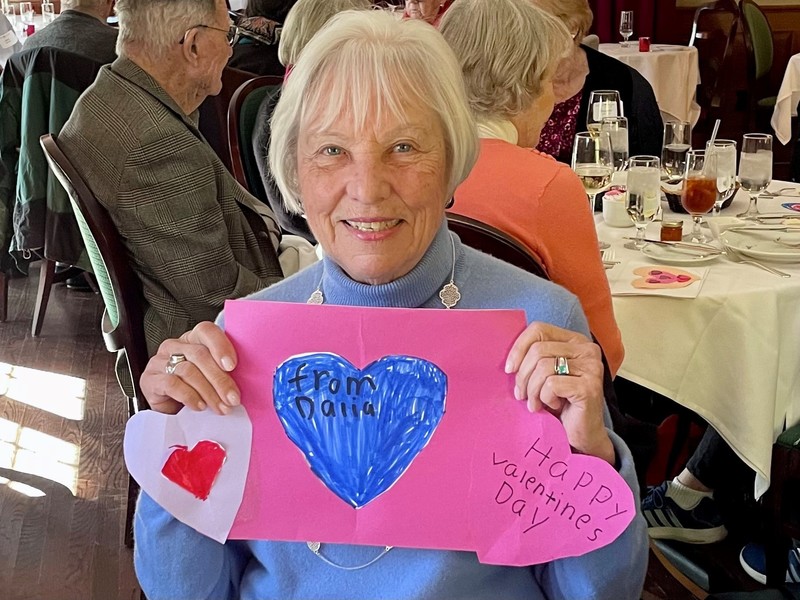 from
Dalia
Happy
valentines
Day